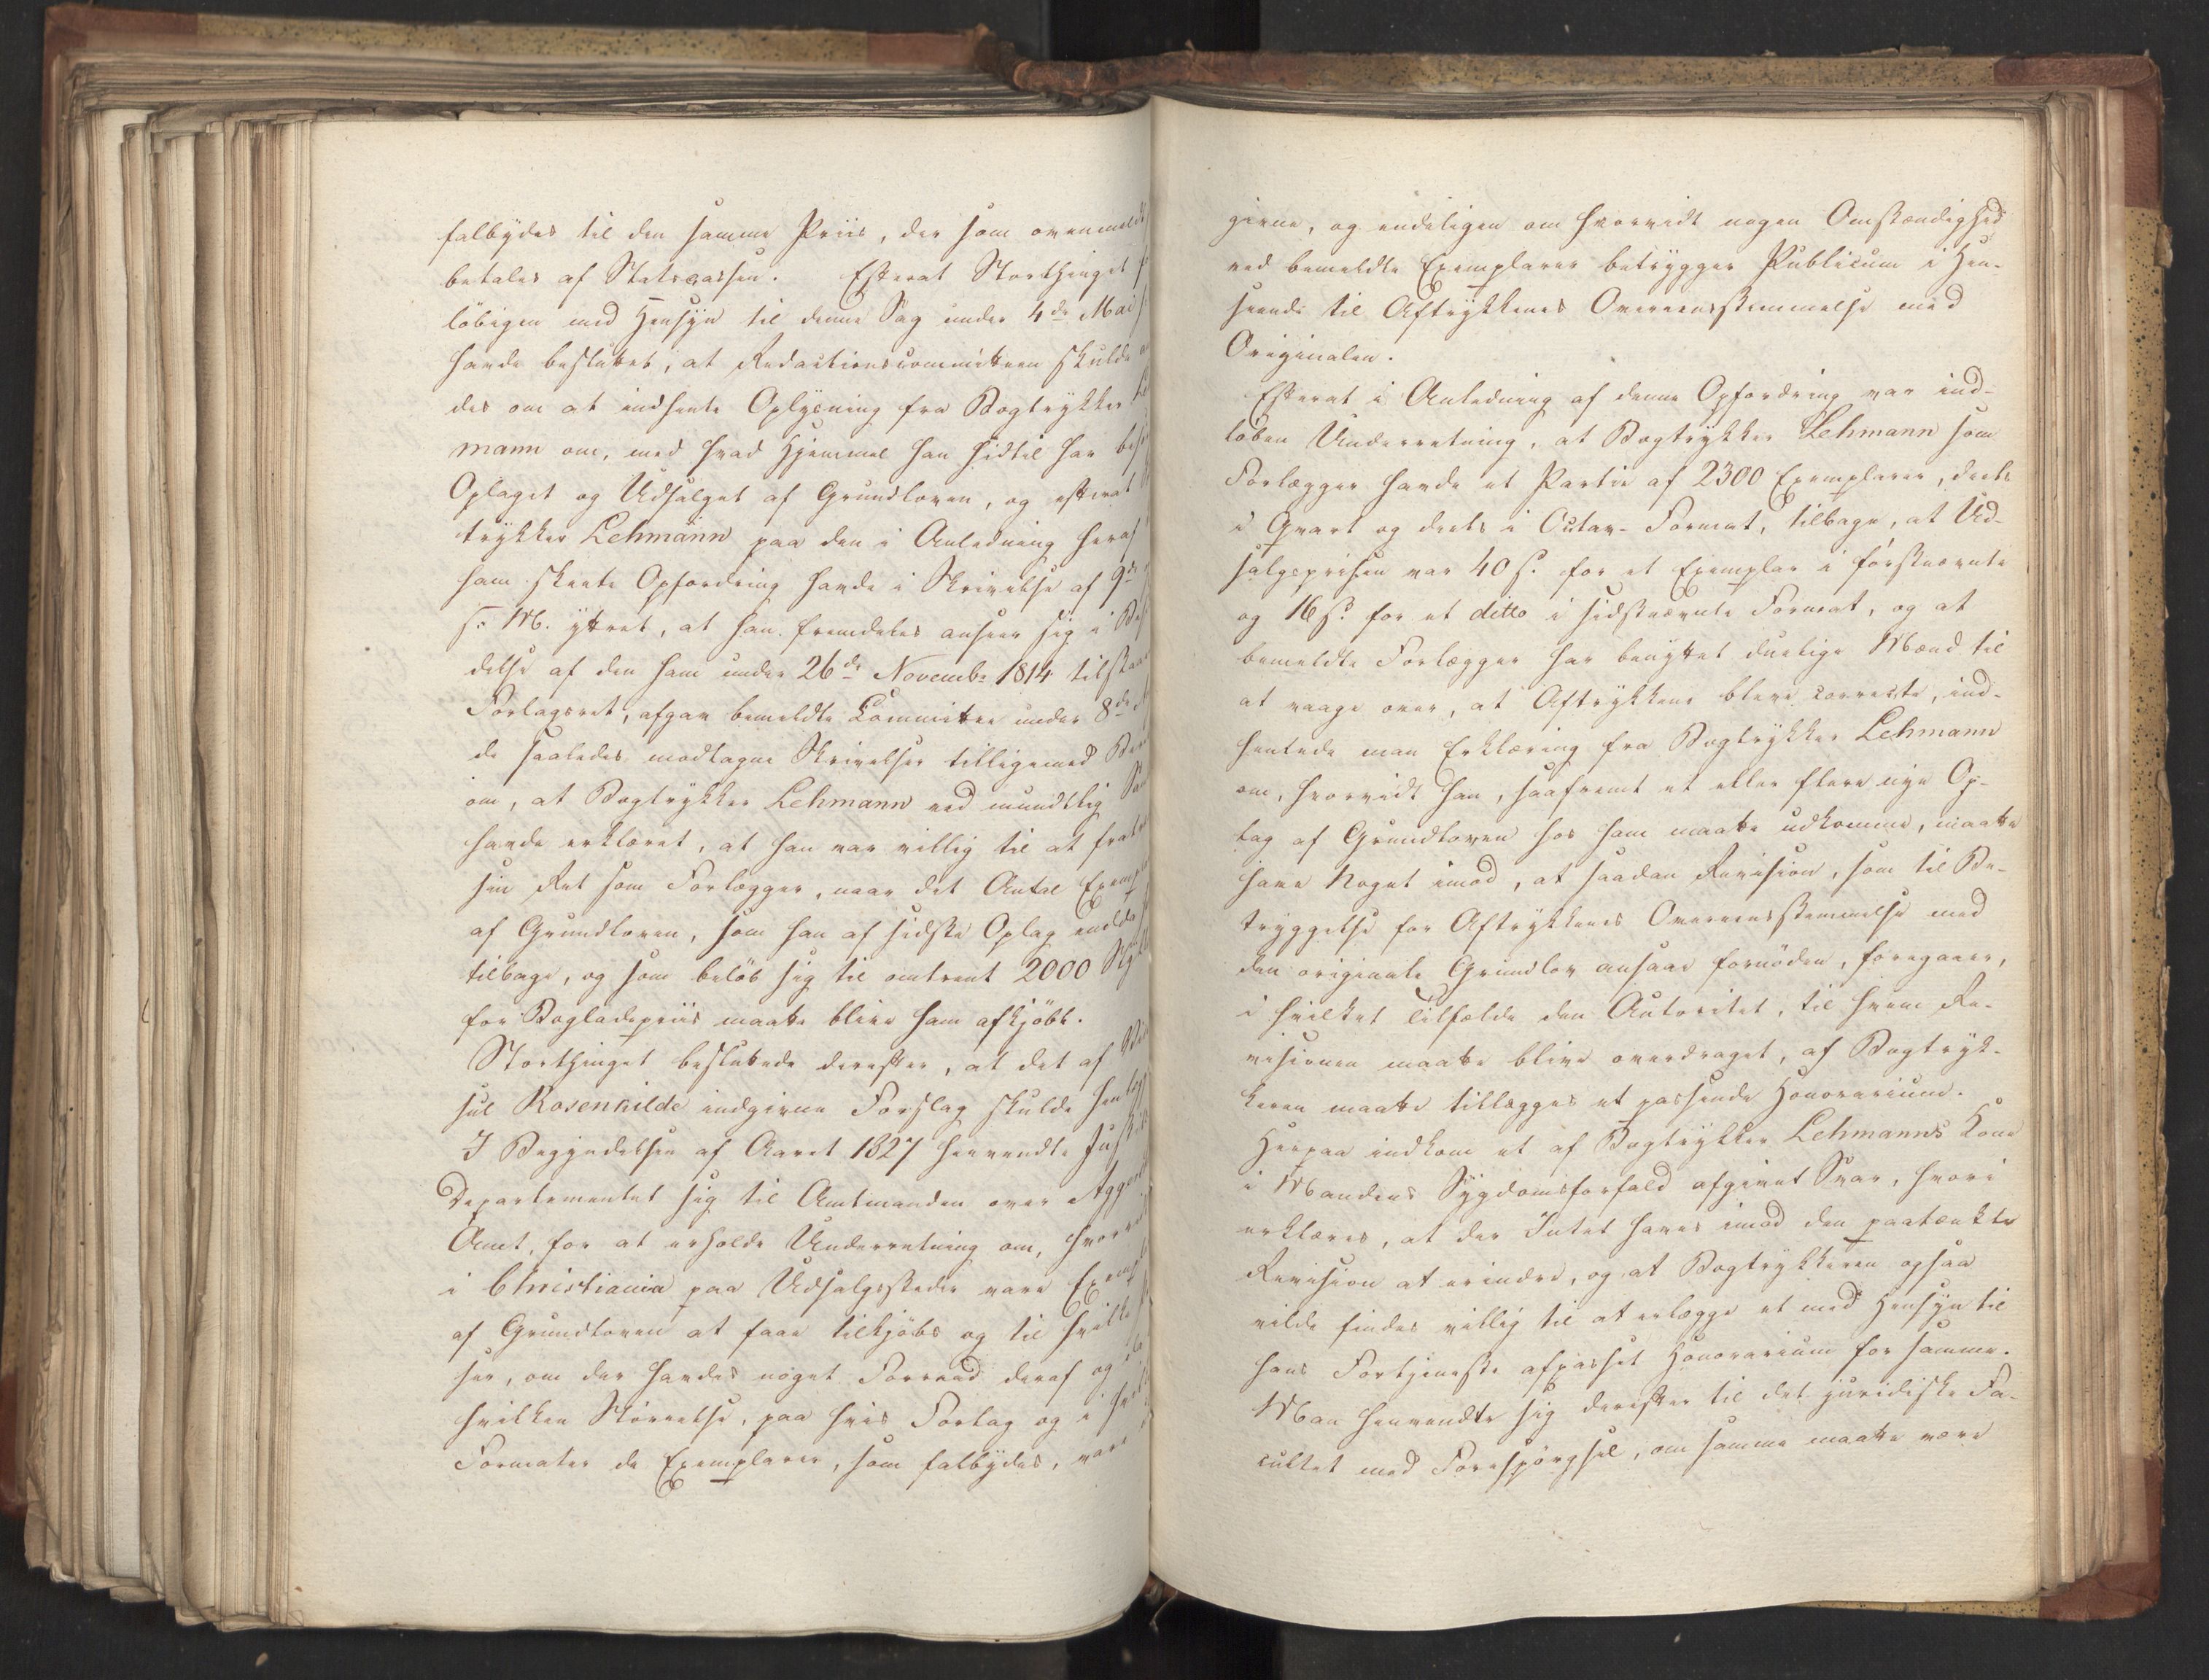 falbydes til den samme Priis, der som ovenmeldt
betales af Statscassen. Efterat Storthinget
löbigen med Hensyn til denne Sag under 4de Mai
havde besluttet, at Redactionscommitteen skulde
des om at indhente Oplysning fra Bogtrykker
mann om, med hvad Hjemmel han hidtil har
Oplaget og Udsalget af Grundloven, og efterat
trykker Lehmann paa den i Anledning heraf
ham skeete Opfordring havde i Skrivelse af 9de
s. M. yttret, at han fremdeles anseer sig i
delse af den ham under 26de Novembr 1814
Forlagsret, afgav bemeldte Committee under 8de
de saaledes modtagne Skrivelser tilligemed
om, at Bogtrykker Lehmann ved mundtlig
havde erklæret, at han var villig til at
sin Ret som Forlægger, naar det Antal
af Grundloven, som han af sidste Oplag endda
tilbage, og som beløb sig til omtrent 2000
for Bogladepriis maatte blive ham afkjöbt.
Storthinget besluttede derefter, at det af
sul Rosenkilde indgivne Forslag skulde
I Begyndelsen af Aaret 1827 henvendte
Departementet sig til Amtmanden over
Amt, for at erholde Underretning om,
i Christiania paa Udsalgsstedir vare
af Grundloven at faae tilkjöbs og til
ser, om der havdes noget Forraad deraf og
hvilken Störrelse, paa hvis Forlag og i
Formater de Exemplarer, som falbydes, vare
givne, og endeligen om hvorvidt nogen Omstændighed
ved bemeldte Exemplarer betrygger Publicum i Hen-
seende til Aftrykkenes Overeensstemmelse med
Originalen.
Efterat i Anledning af denne Opfordring var ind-
löben Underretning, at Bogtrykker Lehmann som
Forlægger havde et Partie af 2300 Exemplarer, deels
i Qvart og deels i Octav-Format, tilbage, at Ud-
salgsprisen var 40 s. for et Exemplar i förstnævnte
og 16 s. for et ditto i sidstnævnte Format, og at
bemeldte Forlægger har benyttet duelige Mænd til
at vaage over, at Aftrykkene bleve correcte, ind-
hentede man Erklæring fra Bogtrykker Lehmann
om, hvorvidt han, saafremt et eller flere nye Op-
lag af Grundloven hos ham maatte udkomme, maatte
have Noget imod, at saadan Revision, som til Be-
tryggelse for Aftrykkenes Overeensstemmelse med
den originale Grundlov ansaaes fornöden, foregaaer,
i hvilket Tilfælde den Autoritet, til hvem Re-
visionen maatte blive overdraget, af Bogtryk-
keren maatte tillægges et passende Honorarium.
Herpaa indkom et af Bogtrykker Lehmanns Kone
i Mandens Sygdomsforfald afgivet Svar, hvori
erklæres, at der Intet haves imod den paatænkte
Revision at erindre, og at Bogtrykkeren ogsaa
vilde findes villig til at erlægge et med Hensyn til
hans Fortjeneste afpasset Honorarium for samme.
Man henvendte sig derefter til det juridiske Fa-
cultet med Forespörgsel, om samme maatte være